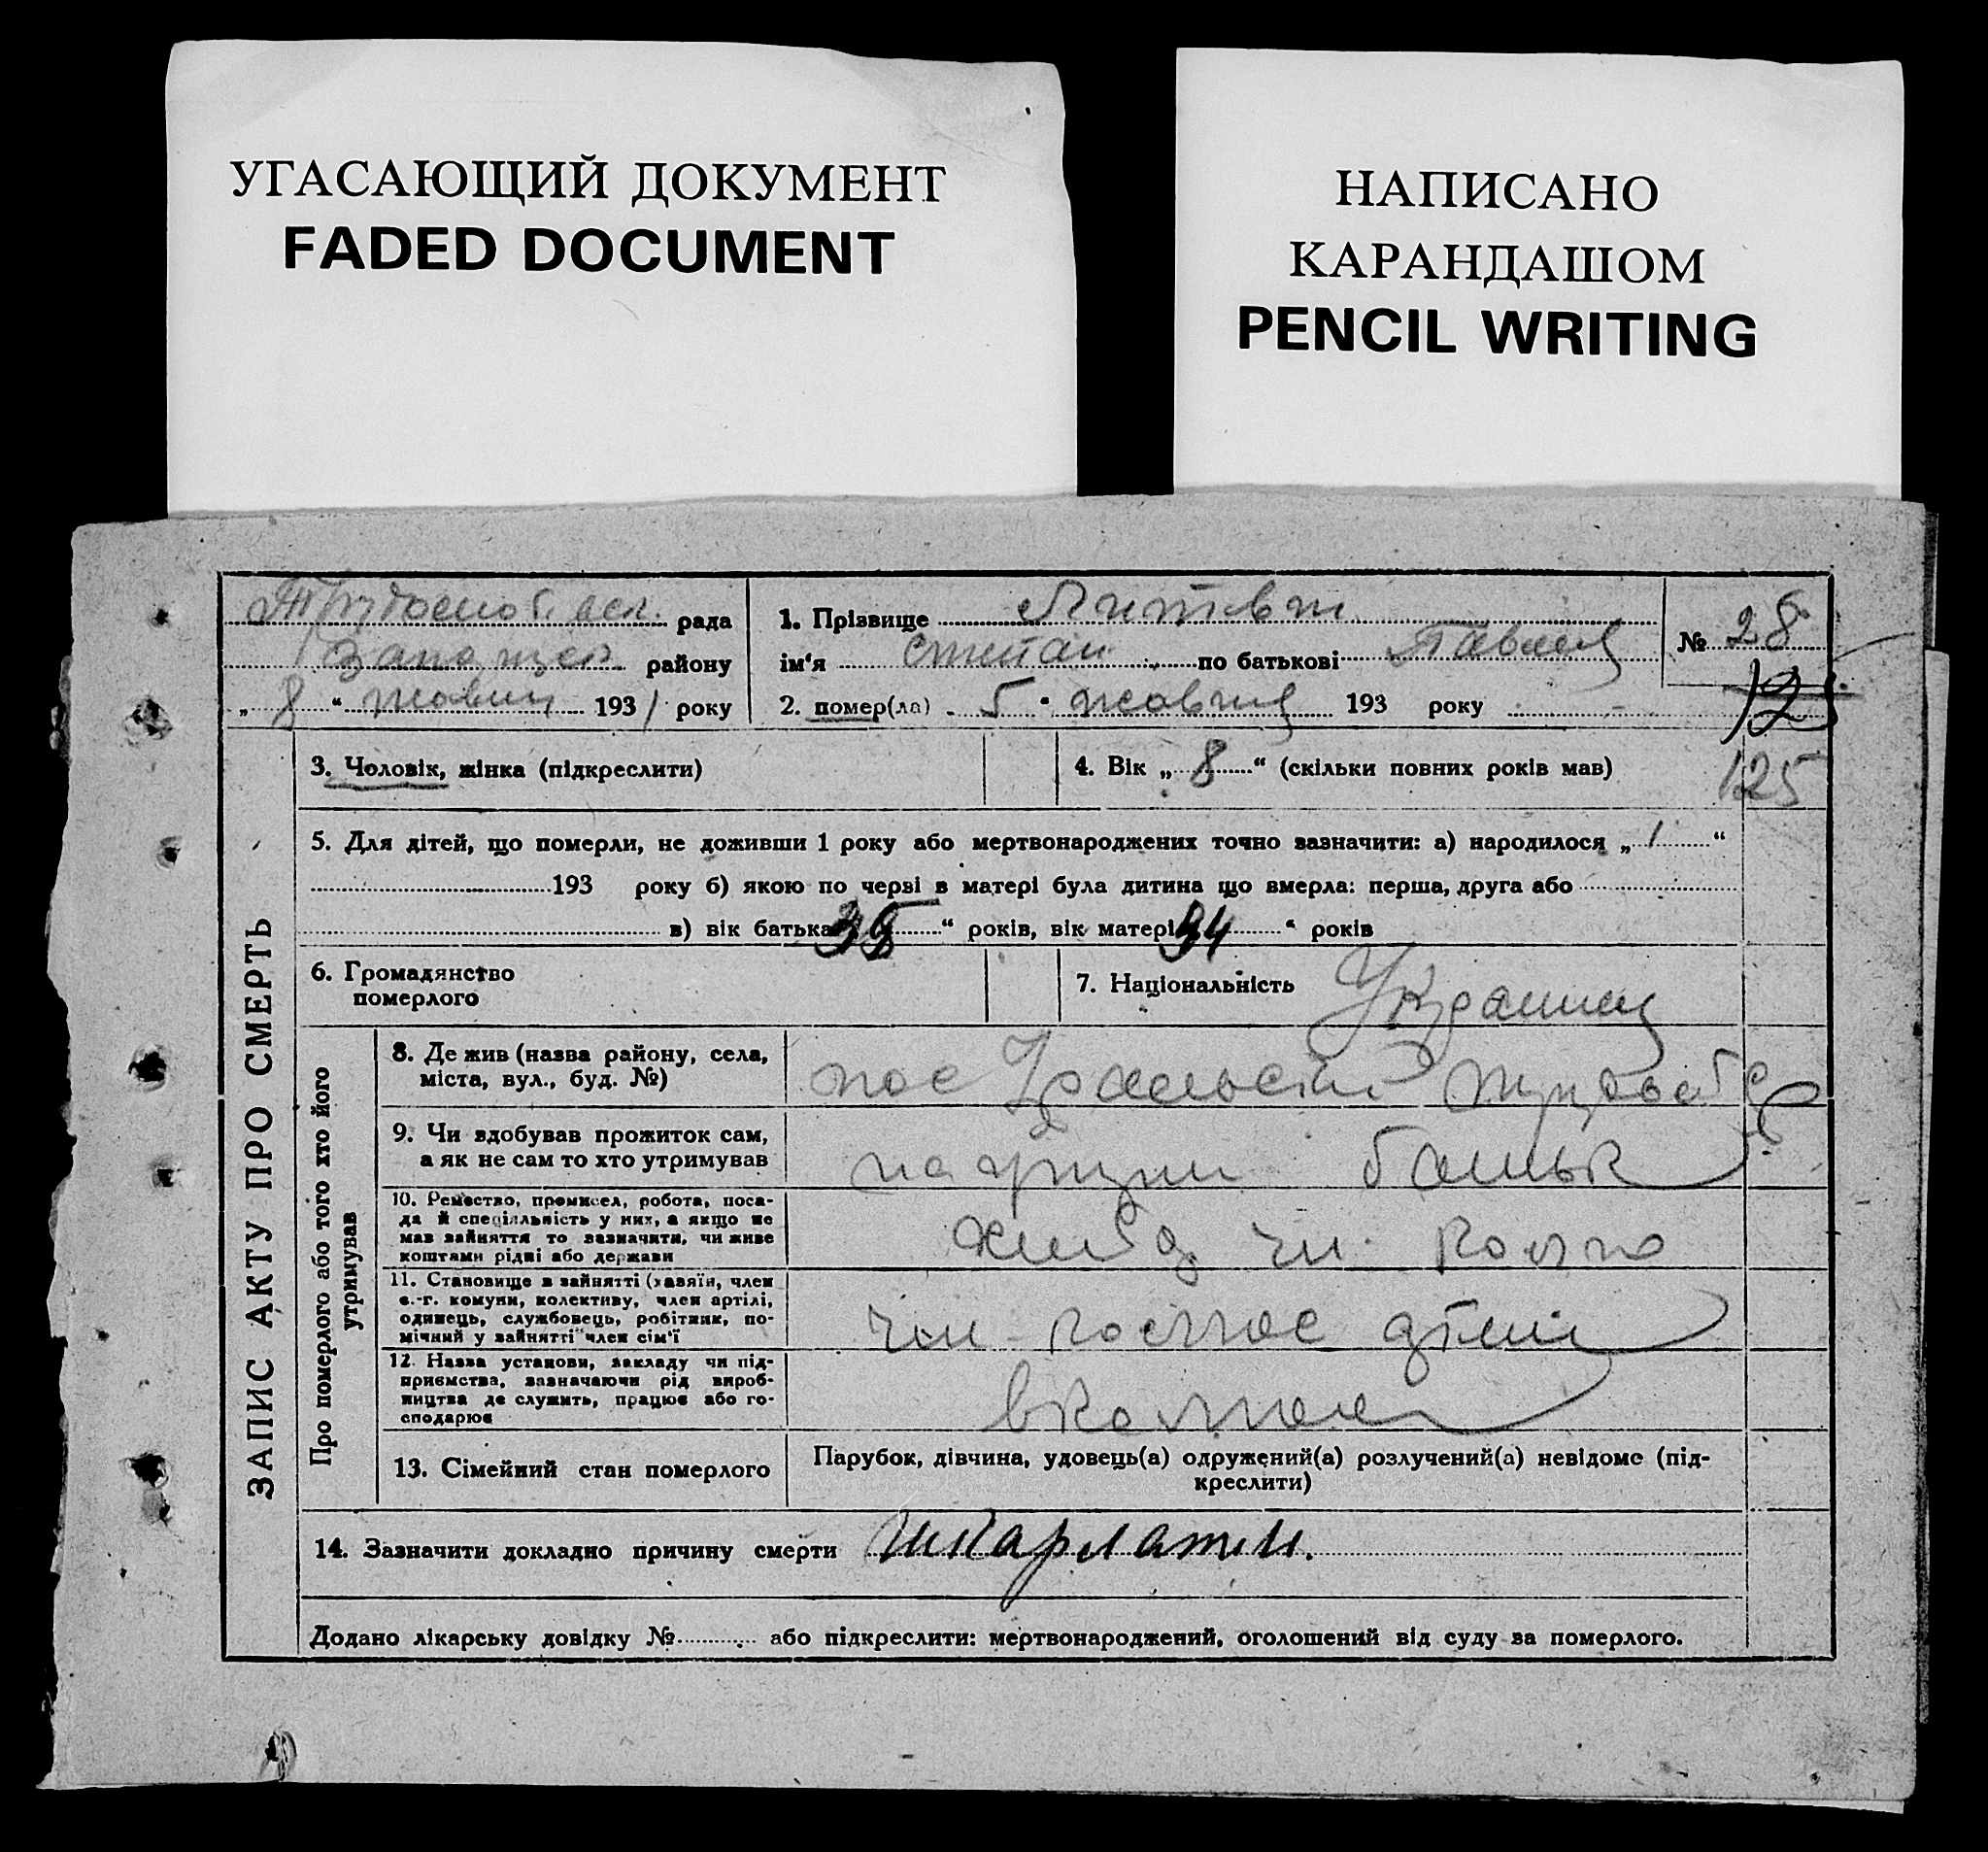 УГАСАЮЩИЙ ДОКУМЕНТ
FADED DOCUMENT
НАПИСАНО
КАРАНДАШОМ
PENCIL WRITING
ЗАПИС АКТУ ПРО СМЕРТЬ
рада
району
„ 8 “ 1931 року
1. Прізвище Литвин
ім‘я Степан по батькові Павлов
№ 28
2. помер(ла) 5 “ жовтня 193 року
125
3. Чоловік, жінка (підкреслити)
4. Вік „ 8 “ (скільки повних років мав)
125
5. Для дітей, що померли, не доживши 1 року або мертвонароджених точно зазначити: а) народилося „ 1 “
193 року б) якою по черві в матері була дитина що вмерла: перша, друга або
в) вік батька 35 “ років, вік матері 34 “ років
6. Громадянство
померлого
7. Національність Українец
Про померлого або того хто його
утримував
8. Де жив (назва району, села,
міста, вул., буд. №)
пос
9. Чи вдобував прожиток сам,
а як не сам то хто утримував
батьк
10. Ремество, промисел, робота, поса-
да й спеціяльність у них, а якщо не
мав зайняття то зазначити, чи живе
коштами рідні або держави
хлібо
11. Становище в зайнятті (хазяїн, член
с.-г. комуни, колективу, член артілі,
одинець, службовець, робітник, по-
мічний у зайнятті член сім‘ї
член
12. Назва установи, закладу чи під-
приємства, зазначаючи рід вироб-
ництва де служить, працює або го-
сподарює
13. Сімейний стан померлого
Парубок, дівчина, удовець(а) одружений(а) розлучений(а) невідомо (під-
креслити)
14. Зазначити докладно причину смерти Шкарлатин.
Додано лікарську довідку № або підкреслити: мертвонароджений, оголошений від суду за померлого.